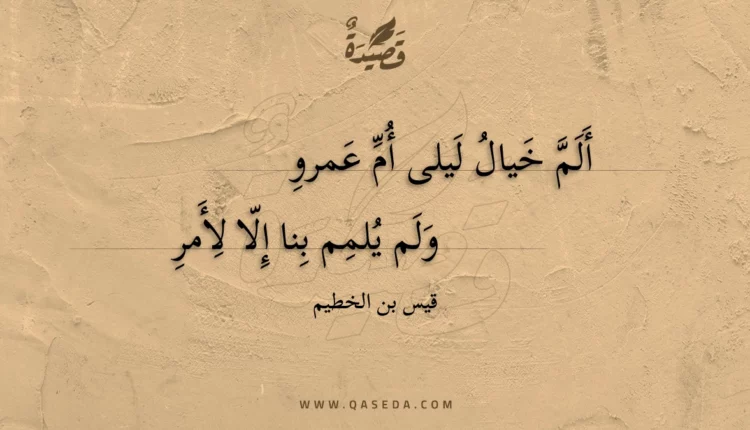 قَصِيدَةٌ
أَلَمَّ خَيالُ لَيلى أُمِّ عَمروِ
وَلَم يُلمِم بِنا إِلّا لِأَمرِ
قيس بن الخطيم
WWW.QASEDA.COM